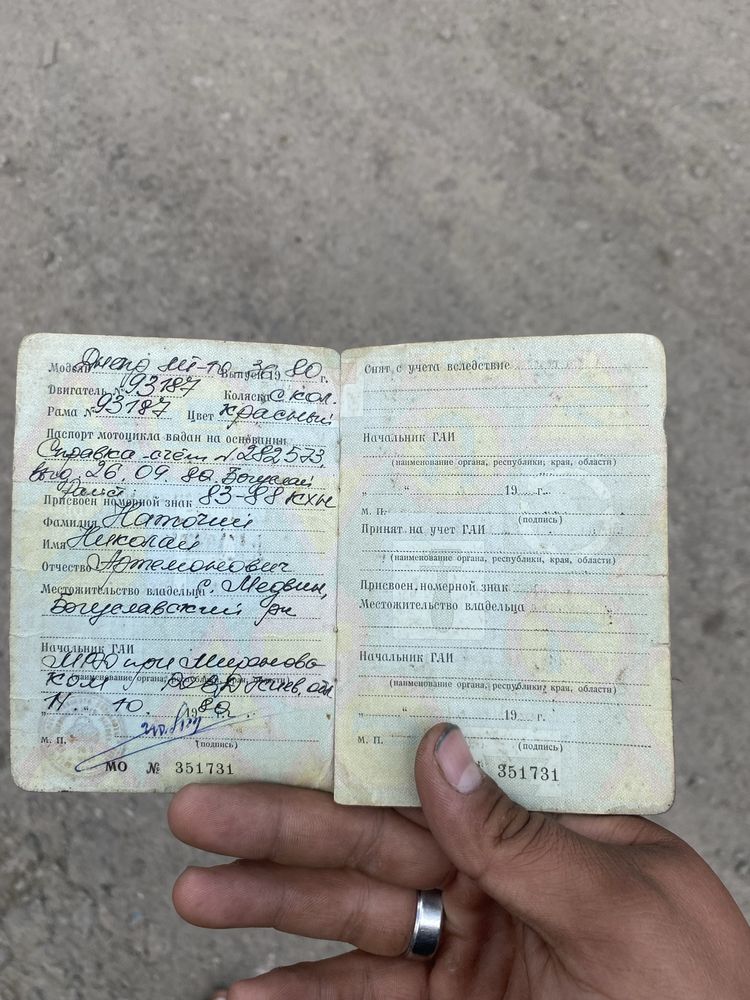 Модель Днепр МТ-10-36 Выпуск 1980 г.
Двигатель № 93187 Коляска с кол.
Рама № 93187 Цвет красный
Паспорт мотоцикла выдан на основании
Справка счёт № 282573
выд. 26.09.80. Богуслав
Присвоен номерной знак 83-88 КХН
Фамилия Наточий
Имя Николай
Отчество Артемонович
Местожительство владельца с. Медвин,
Богуславский рн
Начальник ГАИ
МРЭО при Мироновс
ком РОВД Киев. обл
(наименование органа, республики, края, области)
"11" 10. 1980 г.
М. П. (подпись)
МО № 351731
Снят с учета вследствие
Начальник ГАИ
(наименование органа, республики, края, области)
" " 19 г.
М. П. (подпись)
Принят на учет ГАИ
(наименование органа, республики, края, области)
Присвоен номерной знак
Местожительство владельца
Начальник ГАИ
(наименование органа, республики, края, области)
" " 19 г.
М. П. (подпись)
351731